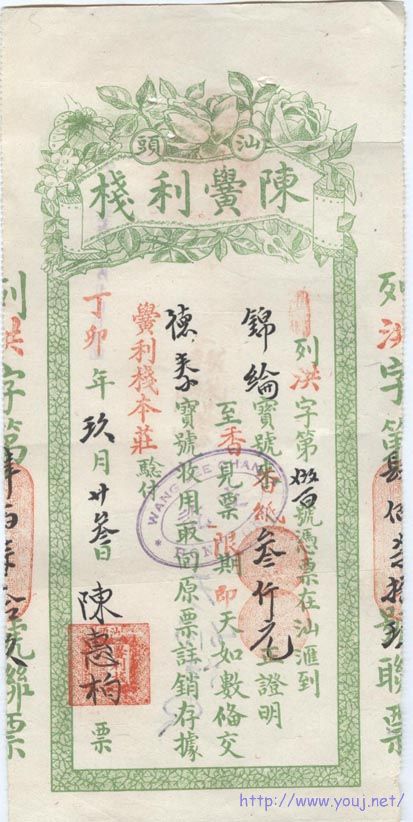 汕頭
陳黌利棧
列洪字第 號憑票在汕滙到
錦綸寶號番紙叁仟元正證明
至香見票限期即天如數俻交
德泰寶號收用取回原票註銷存據
黌利棧本莊驗付
丁卯年玖月廿叁日 票
WANG LEE CHAN
列洪字第
號聯票
http://www.youj.net/